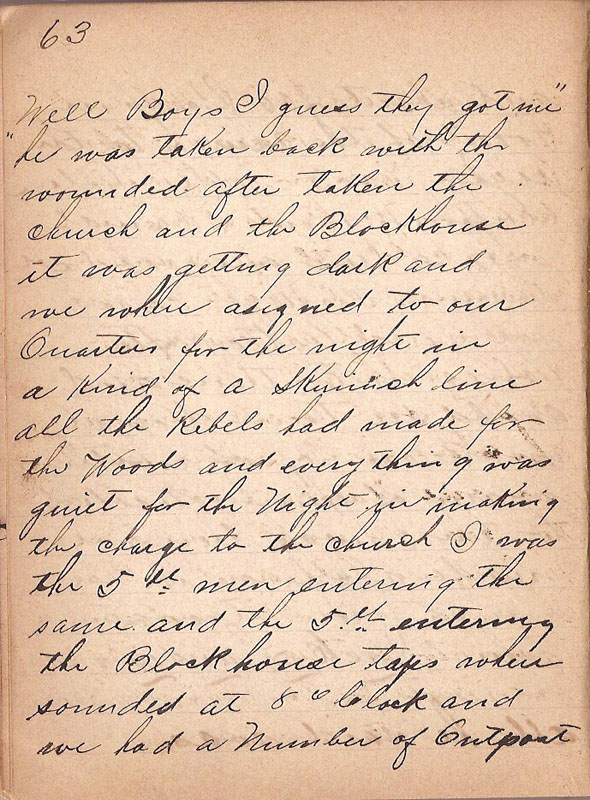 63
Well Boys I guess they got me"
"he was taken back with the
wounded after taken the
church and the Blockhouse
it was getting dark and
we where asigned to our
Quarters for the night in
a Kind of a Skirmish line
all the Rebels had made for
the Woods and everything was
quiet for the Night in making
the charge to the church I was
the 5th men entering the
same and the 5th entering
the Blockhouse taps where
sounded at 8 o Clock and
we had a Number of Outpost